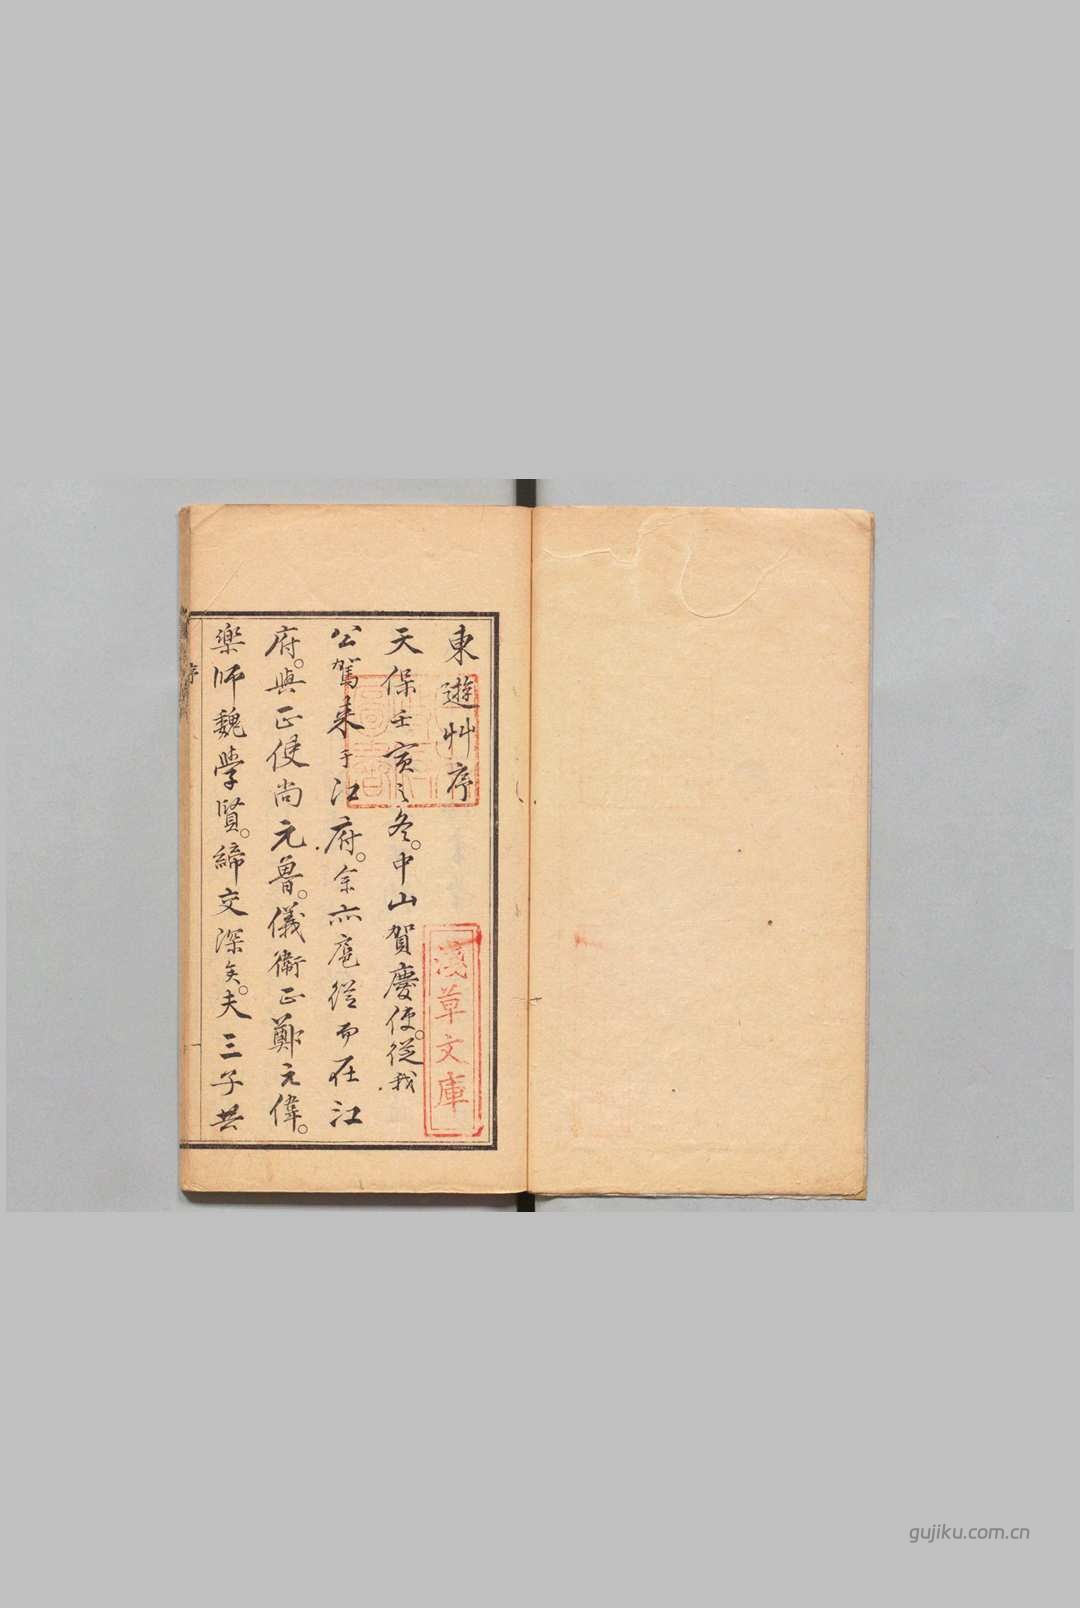 東遊艸序
天保壬寅之冬。中山賀慶使。從我
公駕来于江府。余亦扈從而在江
府。與正使尚元魯。儀衛正鄭元偉。
樂師魏學賢。締交深矣。夫三子共
序
淺草文庫
gujiku.com.cn